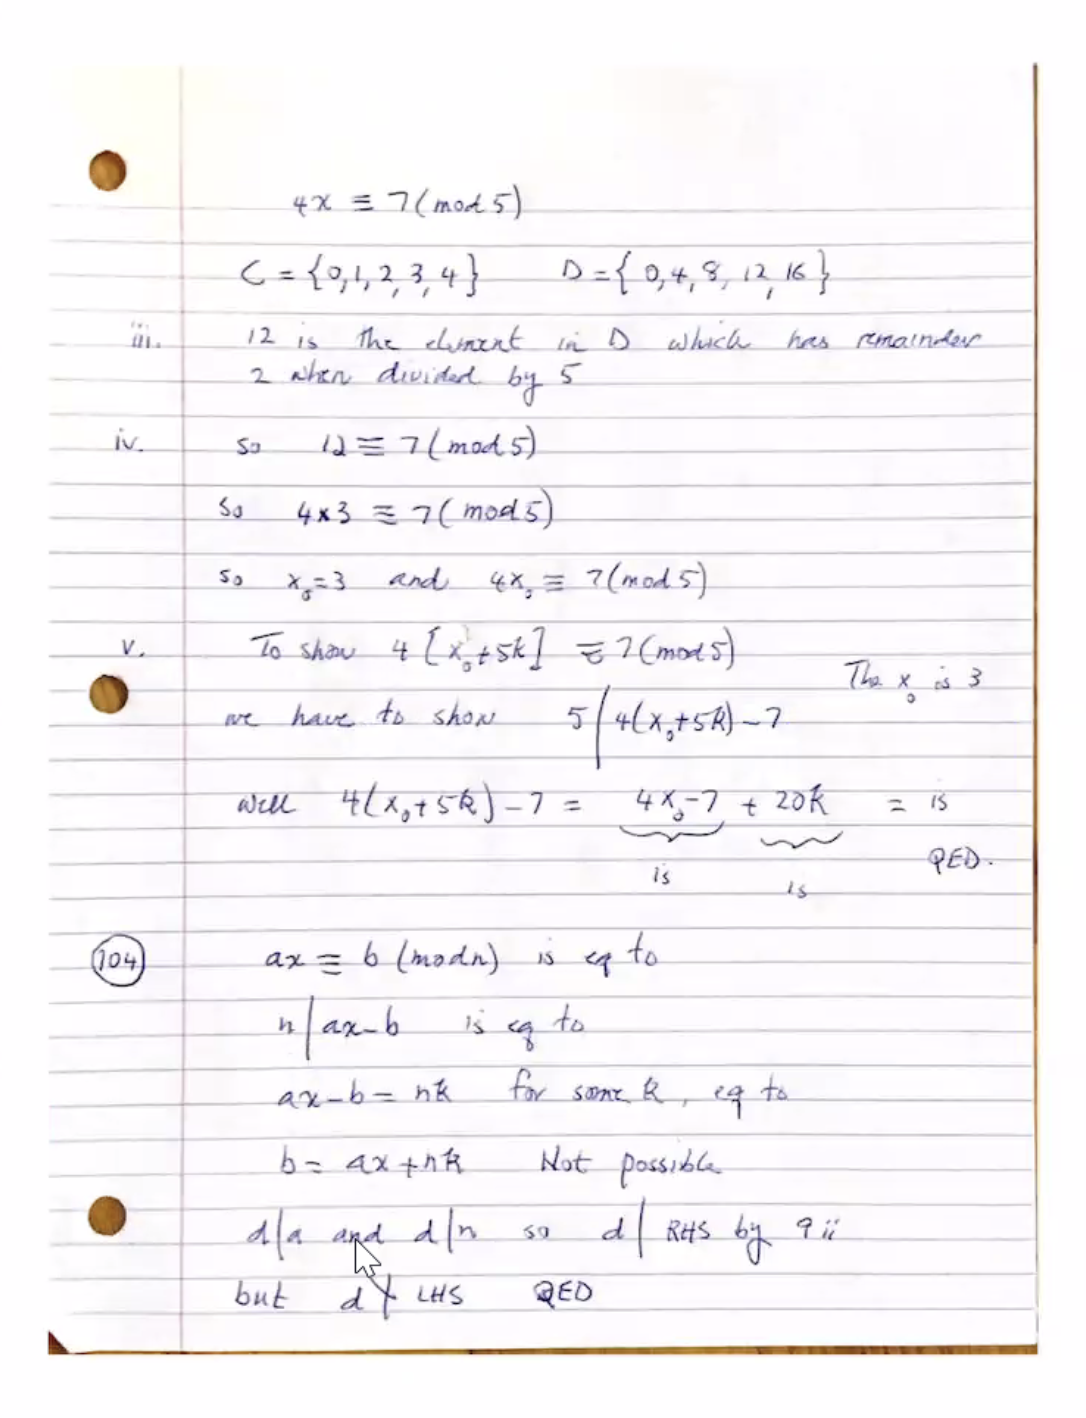 4x ≡ 7(mod 5)
C = {0,1,2,3,4} D = {0,4,8,12,16}
iii. 12 is the element in D which has remainder
2 when divided by 5
iv. so 12 ≡ 7(mod 5)
So 4×3 ≡ 7(mod 5)
so x₀=3 and 4x₀ ≡ 7(mod 5)
v. To show 4[x₀+5k] ≡ 7(mod 5)
The x₀ is 3
we have to show 5 | 4(x₀+5k)-7
well 4(x₀+5k)-7 = 4x₀-7 + 20k = is
is is QED.
104 ax ≡ b (mod n) is eq to
n | ax-b is eq to
ax-b = nk for some k, eq to
b = ax+nk Not possible
d|a and d|n so d | RHS by 9 ii
but d ∤ LHS QED